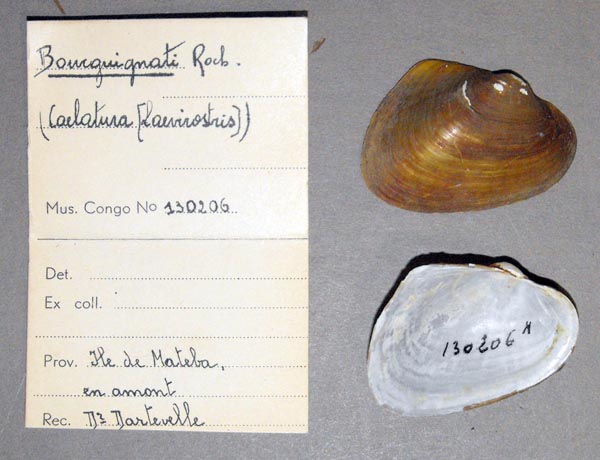 Bourguignati Roch.
(Caelatura [Laevirostris])
Mus. Congo No 130206
Det.
Ex coll.
Prov. Ile de Mateba,
en amont
Rec. Dr Dartevelle
130206 A